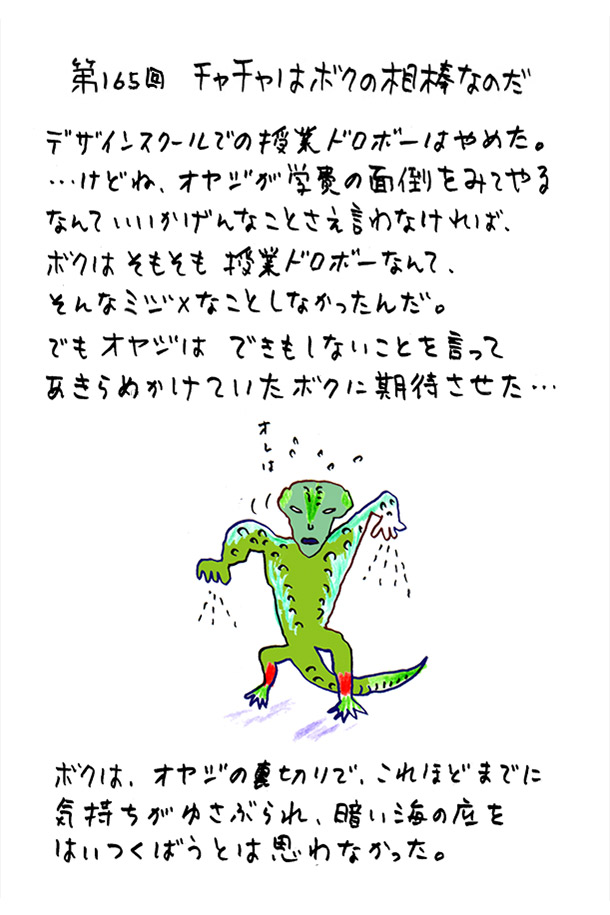 第165回 チャチャはボクの相棒なのだ
デザインスクールでの授業ドロボーはやめた。
…けどね、オヤジが学費の面倒をみてやる
なんていいかげんなことさえ言わなければ、
ボクはそもそも授業ドロボーなんて、
そんなミジメなことしなかったんだ。
でもオヤジは できもしないことを言って
あきらめかけていたボクに期待させた…
オレは
ボクは、オヤジの裏切りで、これほどまでに
気持ちがゆさぶられ、暗い海の底を
はいつくばうとは思わなかった。